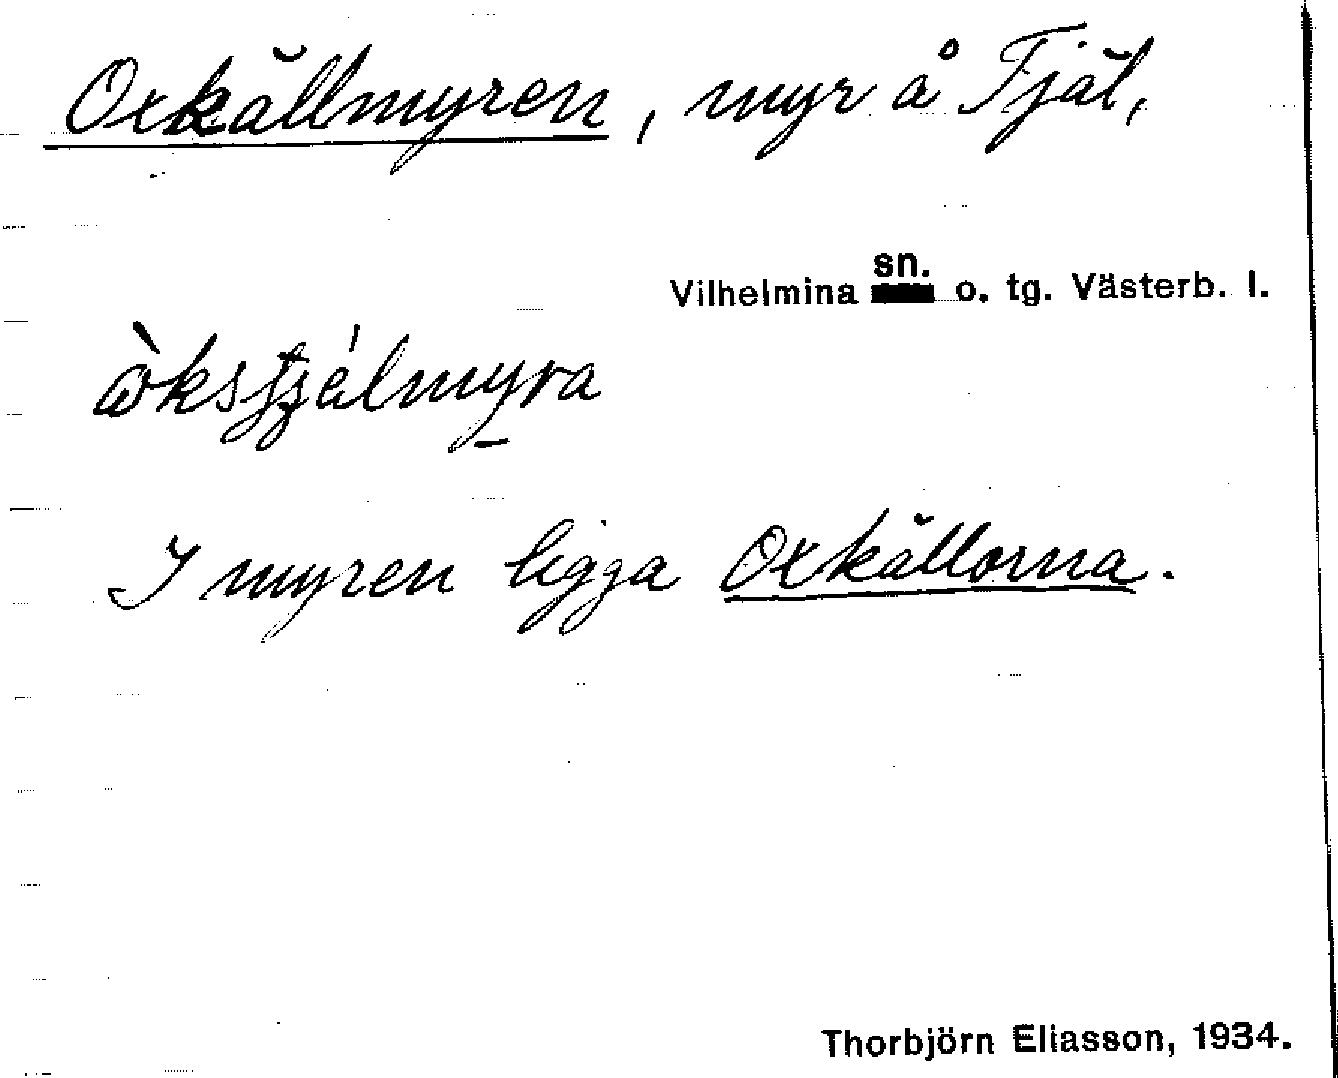 Oxkällmyren, myr å Fjäl,
Vilhelmina sn. o. tg. Västerb. l.
I myren ligga Oxkällorna.
Thorbjörn Eliasson, 1934.